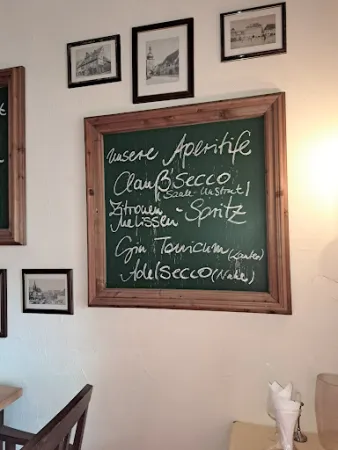 unsere Aperitife
Clauß'secco
(Saale-Unstrut)
Zitronen
Melissen-Spritz
Gin Tonicum
Adelsecco (Nahe)